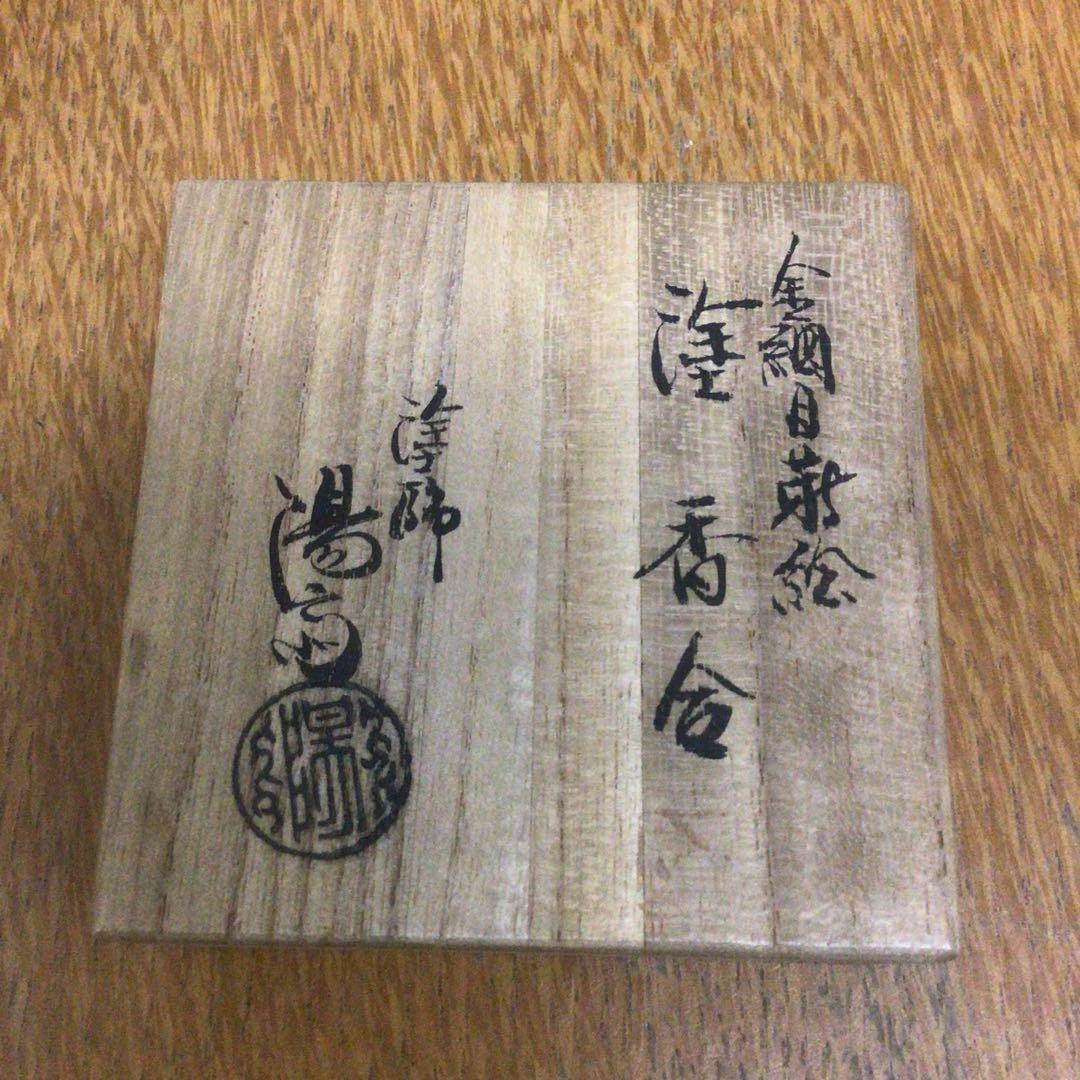 金網目蒔絵
塗香合
塗師
湯